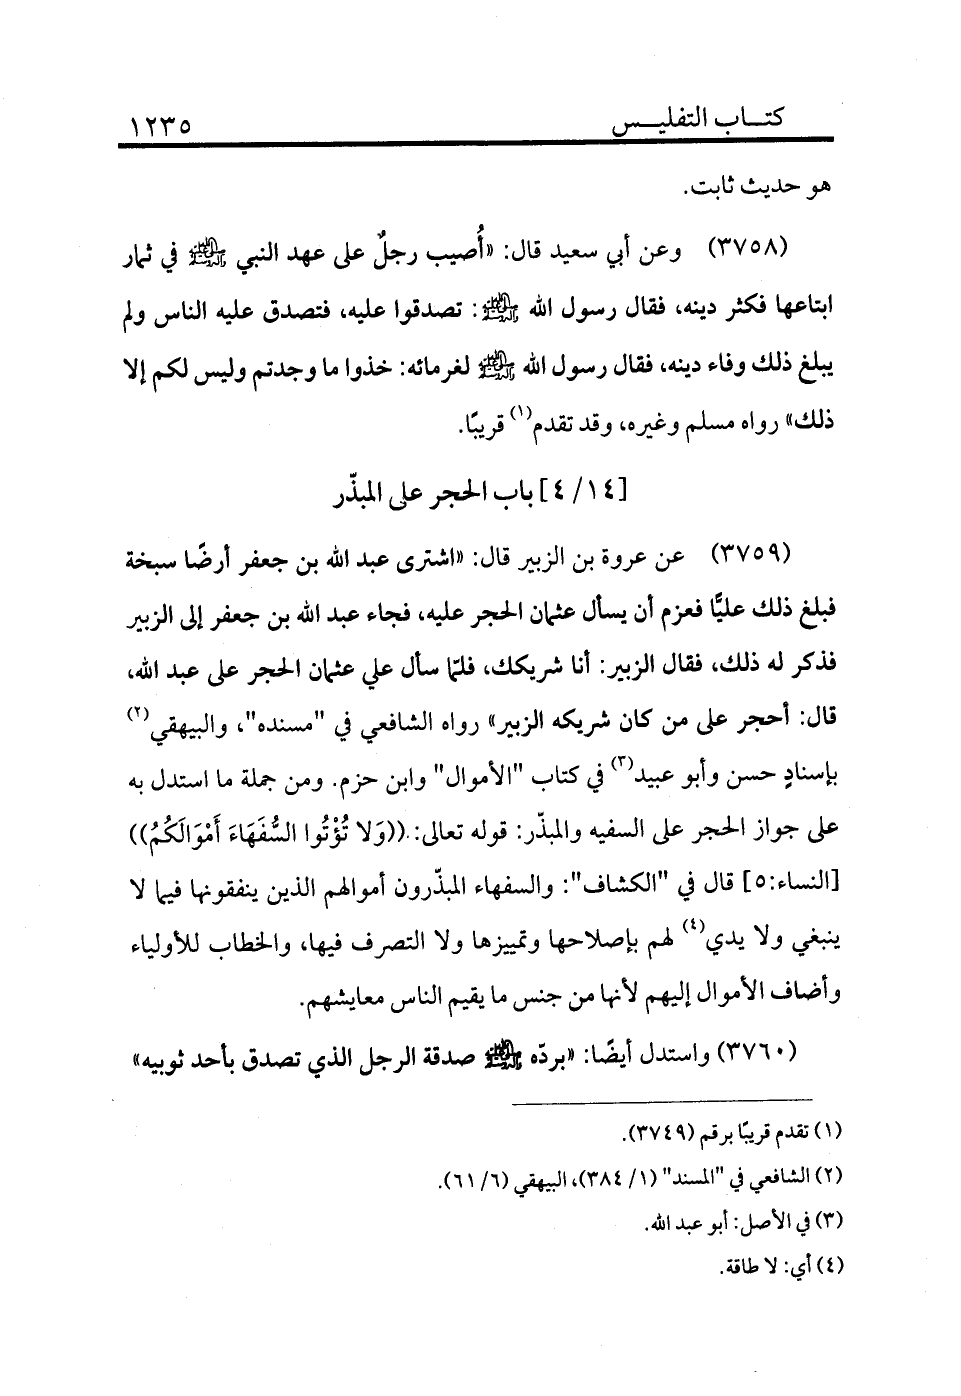 كتـاب التفليـس ١٢٣٥
هو حديث ثابت.
(٣٧٥٨) وعن أبي سعيد قال: «أُصيب رجلٌ على عهد النبي ﷺ في ثمار
ابتاعها فكثر دينه، فقال رسول الله ﷺ: تصدقوا عليه، فتصدق عليه الناس ولم
يبلغ ذلك وفاء دينه، فقال رسول الله ﷺ لغرمائه: خذوا ما وجدتم وليس لكم إلا
ذلك» رواه مسلم وغيره، وقد تقدم(١) قريبًا.
[٤/١٤] باب الحجر على المبذّر
(٣٧٥٩) عن عروة بن الزبير قال: «اشترى عبد الله بن جعفر أرضًا سبخة
فبلغ ذلك عليًّا فعزم أن يسأل عثمان الحجر عليه، فجاء عبد الله بن جعفر إلى الزبير
فذكر له ذلك، فقال الزبير: أنا شريكك، فلمّا سأل علي عثمان الحجر على عبد الله،
قال: أحجر على من كان شريكه الزبير» رواه الشافعي في "مسنده"، والبيهقي(٢)
بإسنادٍ حسن وأبو عبيد(٣) في كتاب "الأموال" وابن حزم. ومن جملة ما استدل به
على جواز الحجر على السفيه والمبذّر: قوله تعالى: ((وَلا تُؤْتُوا السُّفَهَاءَ أَمْوَالَكُمُ))
[النساء:٥] قال في "الكشاف": والسفهاء المبذّرون أموالهم الذين ينفقونها فيما لا
ينبغي ولا يدي(٤) لهم بإصلاحها وتمييزها ولا التصرف فيها، والخطاب للأولياء
وأضاف الأموال إليهم لأنها من جنس ما يقيم الناس معايشهم.
(٣٧٦٠) واستدل أيضًا: «بردّه ﷺ صدقة الرجل الذي تصدق بأحد ثوبيه»
(١) تقدم قريبًا برقم (٣٧٤٩).
(٢) الشافعي في "المسند" (١/ ٣٨٤)، البيهقي (٦/ ٦١).
(٣) في الأصل: أبو عبد الله.
(٤) أي: لا طاقة.